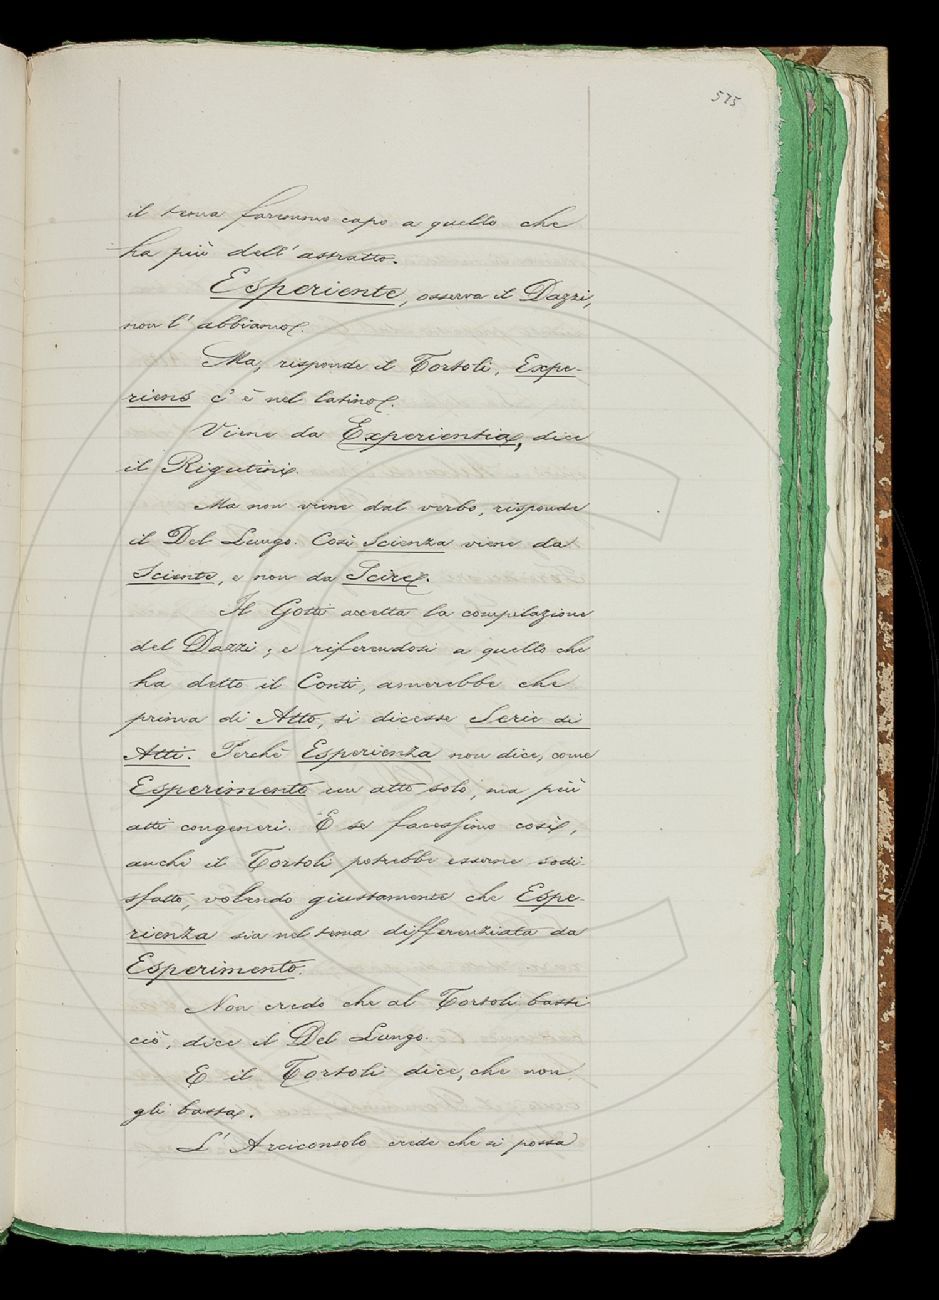 575
il tema faremmo capo a quello che
ha più dell'astratto.
Esperiente, osserva il Dazzi,
non l'abbiamo.
Ma, risponde il Tortoli, Expe-
riens c'è nel latino.
Viene da Experientia, dice
il Rigutini.
Ma non viene dal verbo, risponde
il Del Lungo. Così Scienza viene da
Sciente, e non da Scire.
Il Gotti accetta la compilazione
del Dazzi; e riferendosi a quello che
ha detto il Conti, amerebbe che
prima di Atto, si dicesse Serie di
Atti. Perchè Esperienza non dice, come
Esperimento un atto solo, ma più
atti congeneri. E se facessimo così,
anche il Tortoli potrebbe esserne sodi-
sfatto, volendo giustamente che Espe-
rienza sia nel tema differenziata da
Esperimento.
Non credo che al Tortoli basti
ciò, dice il Del Lungo.
E il Tortoli dice, che non
gli basta.
L'Arciconsolo crede che si possa